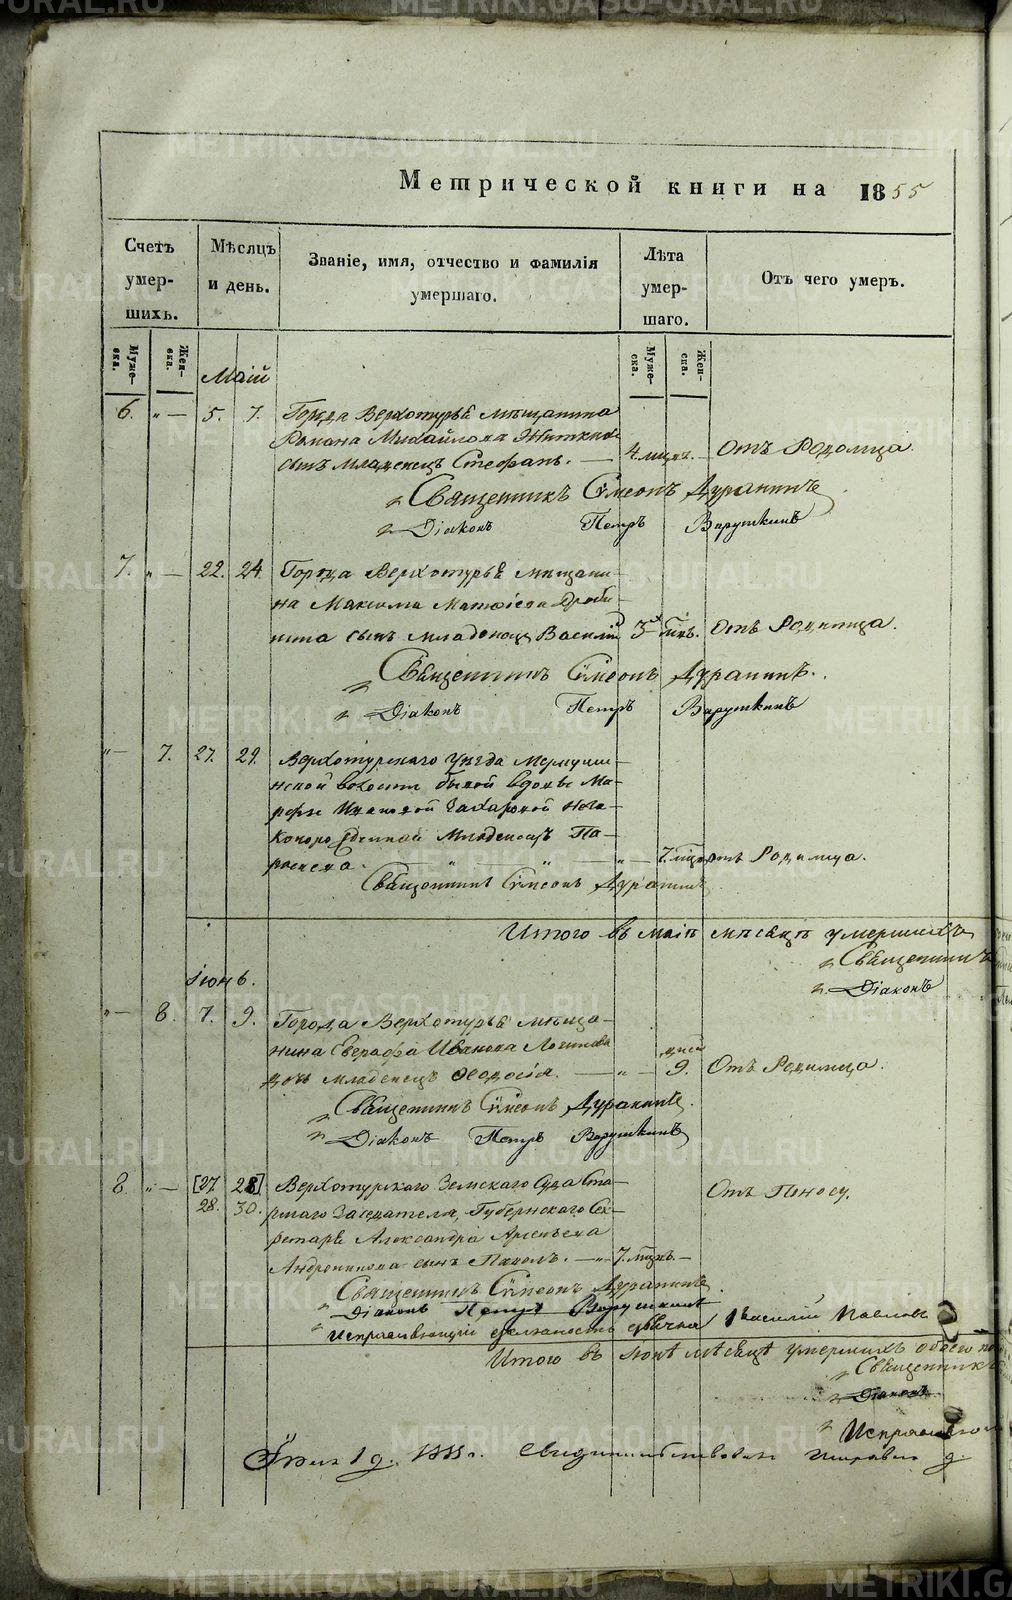 Метрической книги на 1855
Счетъ умершихъ.
Мѣсяцъ и день.
Званіе, имя, отчество и фамилія умершаго.
Лѣта умершаго.
Отъ чего умеръ.
Мужеска.
Женска.
Мужеска.
Женска.
Маій
6. „— 5. 7. Города Верхотурья мѣщанина
Романа Михайлова
сынъ младенецъ Стефанъ. — 4 мцъ. — Отъ Родимца.
Священникъ Симеонъ Дуранинъ
Діаконъ Петръ Варушкинъ
7. „— 22. 24. Города Верхотурья мѣщани-
на Максима Матфіева Дроби-
нина сынъ младенецъ Василій 3 мцъ. Отъ Родимца.
Священникъ Симеонъ Дуранинъ.
Діаконъ Петръ Варушкинъ
„— 7. 27. 29. Верхотурскаго уѣзда
волости вдовы Ма-
рфы Ивановой Захаровой неза-
конорожденный Младенецъ Па-
раскева. „ „ — „ — 7. мцовъ отъ Родимца.
Священникъ Симеонъ Дуранинъ
Итого въ маіѣ мѣсяцѣ умершихъ
Священникъ
Діаконъ
Іюнь.
„— 8. 7. 9. Города Верхотурья мѣща-
нина Иванова Логинова дней
дочь младенецъ Ѳеодосія. — „ — 9. Отъ Родимца.
Священникъ Симеонъ Дуранинъ.
Діаконъ Петръ Варушкинъ
8. „— [27 28] Верхотурскаго Земскаго Суда Ста-
28. 30. ршаго Засѣдателя, Губернскаго Сек- Отъ Поносу.
ретаря Александра Арсеньева
Андроникова сынъ Павелъ. — „ 7. мцъ —
Священникъ Симеонъ Дуранинъ.
Діаконъ Петръ Варушкинъ
Исправляющій должность дьячка Василій Павловъ
Итого въ Іюнѣ мѣсяцѣ умершихъ обоего по
Священникъ
Діаконъ
Исправляющ
1855 г. Свидѣтельствовалъ
METRIKI.GASO-URAL.RU